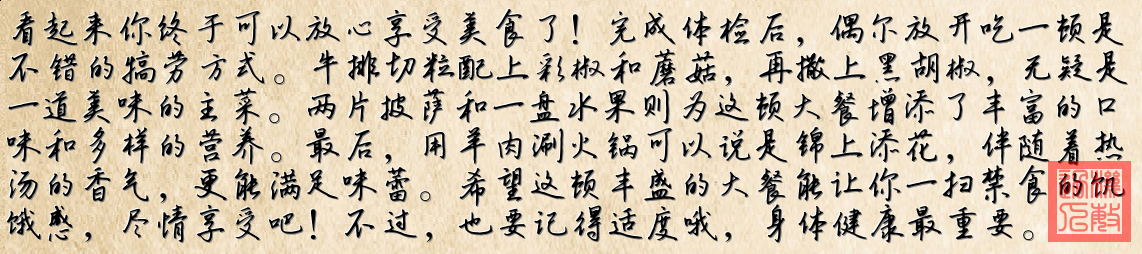 看起来你终于可以放心享受美食了！完成体检后，偶尔放开吃一顿是
不错的犒劳方式。牛排切粒配上彩椒和蘑菇，再撒上黑胡椒，无疑是
一道美味的主菜。两片披萨和一盘水果则为这顿大餐增添了丰富的口
味和多样的营养。最后，用羊肉涮火锅可以说是锦上添花，伴随着热
汤的香气，更能满足味蕾。希望这顿丰盛的大餐能让你一扫禁食的饥
饿感，尽情享受吧！不过，也要记得适度哦，身体健康最重要。